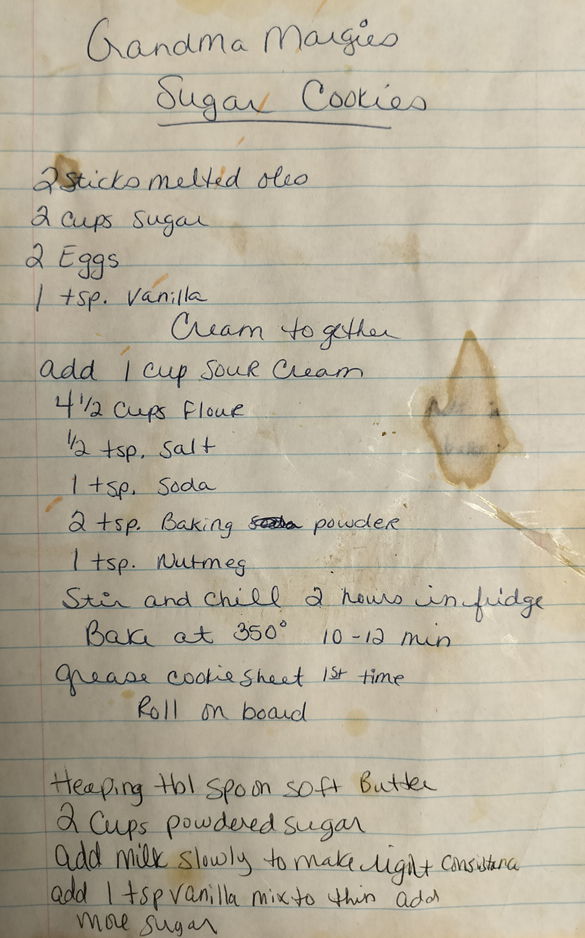 Grandma Margies
Sugar Cookies
2 sticks melted oleo
2 cups Sugar
2 Eggs
1 tsp. Vanilla
Cream together
add 1 cup Sour Cream
4 1/2 Cups Flour
1/2 tsp. Salt
1 tsp. Soda
2 tsp. Baking powder
1 tsp. Nutmeg
Stir and chill 2 hours in fridge
Bake at 350° 10-12 min
grease cookie sheet 1st time
Roll on board
Heaping tbl spoon soft Butter
2 Cups powdered sugar
add milk slowly to make right
add 1 tsp vanilla mix to thin add
more sugar